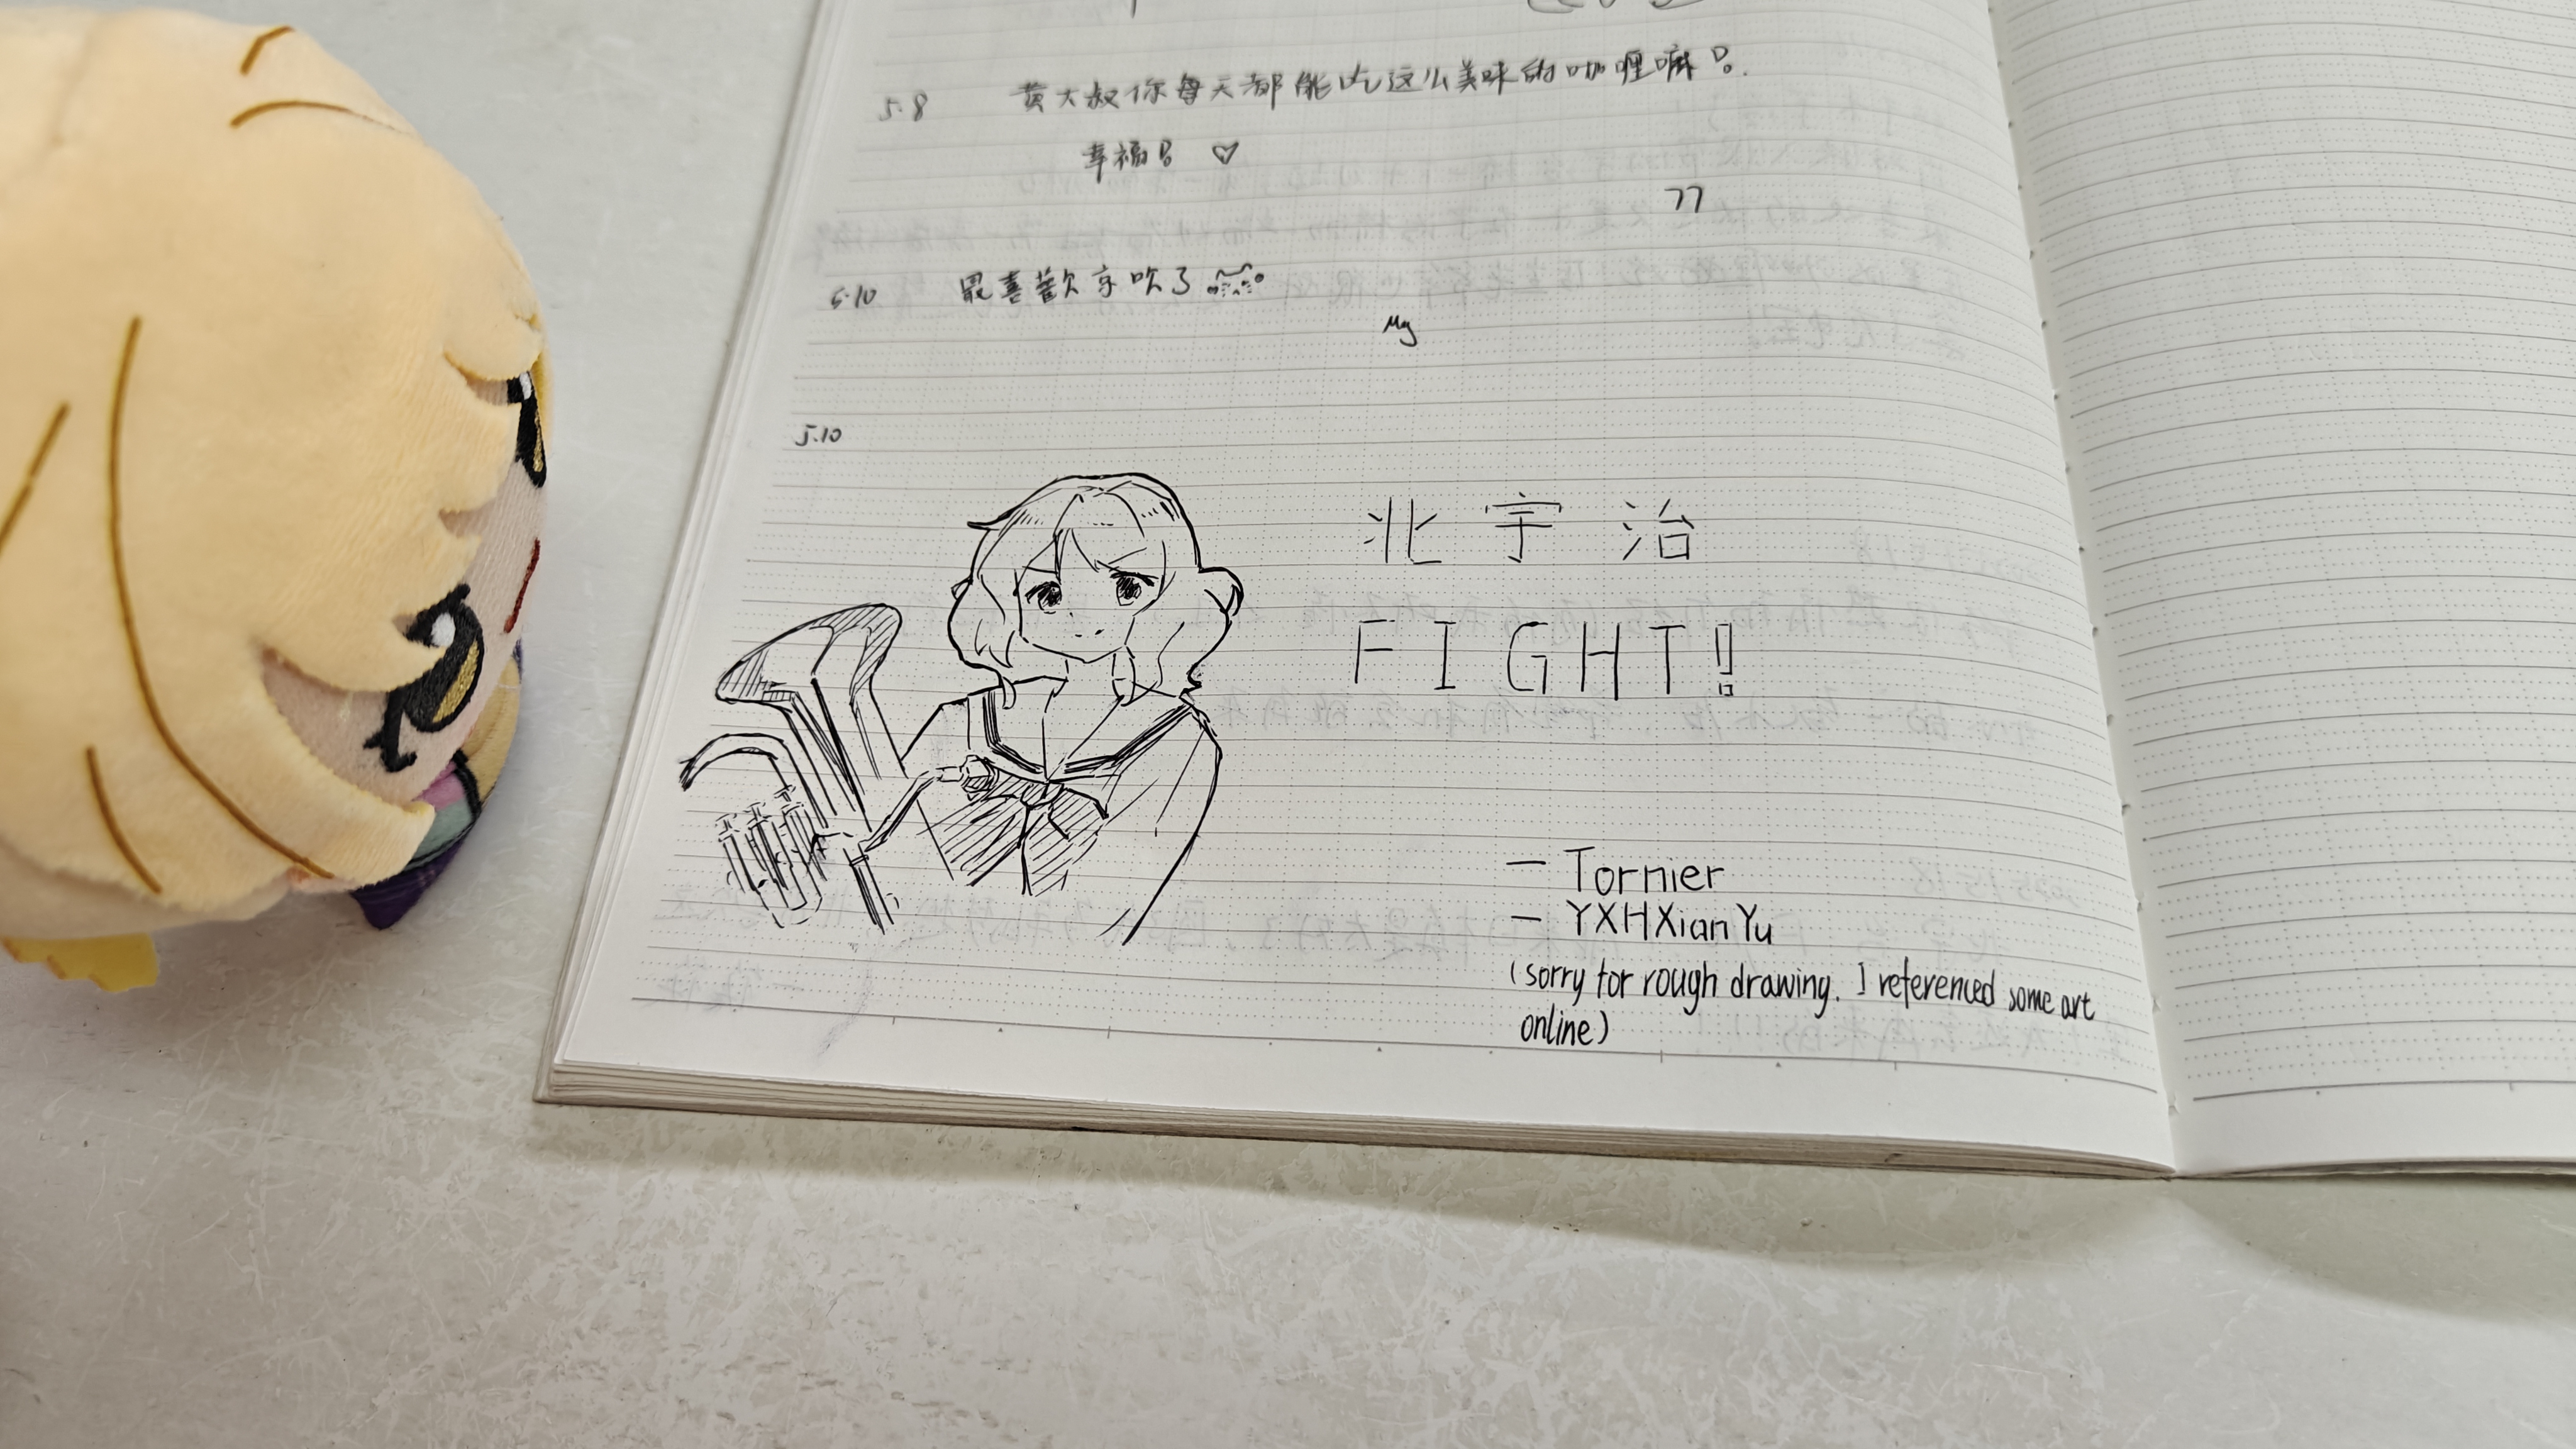 5.8 黄大叔你每天都能吃这么美味的咖喱嘛?。
幸福 ♡
77
5.10 最喜歡京吹了
My
5.10
北宇治
FIGHT!
— Tornier
— YXHXianYu
(sorry for rough drawing. I referenced some art
online)